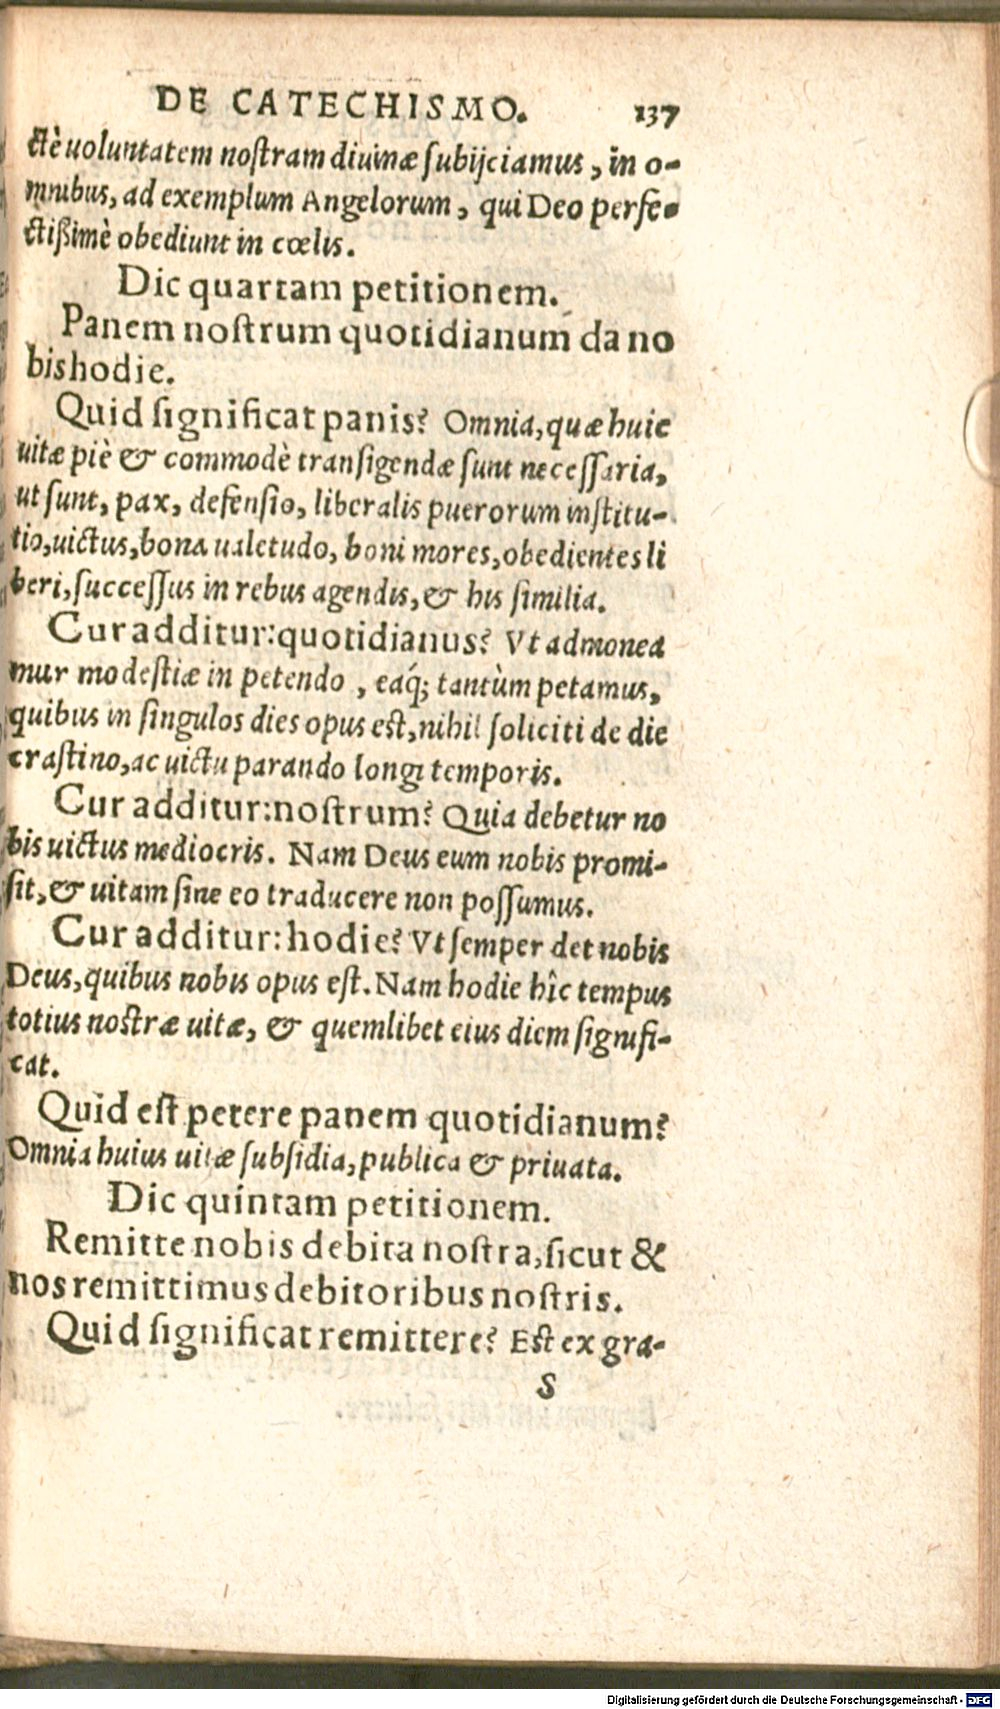 DE CATECHISMO. 137
ctè uoluntatem noſtram diuinæ ſubijciamus, in o-
mnibus, ad exemplum Angelorum, qui Deo perfe-
ctißimè obediunt in cœlis.
Dic quartam petitionem.
Panem noſtrum quotidianum da no
bis hodie.
Quid ſignificat panis? Omnia, quæ huic
uitæ piè & commodè tranſigendæ ſunt neceſſaria,
ut ſunt, pax, defenſio, liberalis puerorum inſtitu-
tio, uictus, bona ualetudo, boni mores, obedientes li
beri, ſucceſſus in rebus agendis, & his ſimilia.
Cur additur: quotidianus? Vt admonea
mur modeſtiæ in petendo, eaq́; tantùm petamus,
quibus in ſingulos dies opus eſt, nihil ſoliciti de die
craſtino, ac uictu parando longi temporis.
Cur additur: noſtrum? Quia debetur no
bis uictus mediocris. Nam Deus eum nobis promi-
ſit, & uitam ſine eo traducere non poſſumus.
Cur additur: hodie? Vt ſemper det nobis
Deus, quibus nobis opus eſt. Nam hodie hîc tempus
totius noſtræ uitæ, & quemlibet eius diem ſignifi-
cat.
Quid eſt petere panem quotidianum?
Omnia huius uitæ ſubſidia, publica & priuata.
Dic quintam petitionem.
Remitte nobis debita noſtra, ſicut &
nos remittimus debitoribus noſtris.
Quid ſignificat remittere? Eſt ex gra-
S
Digitalisierung gefördert durch die Deutsche Forschungsgemeinschaft - DFG